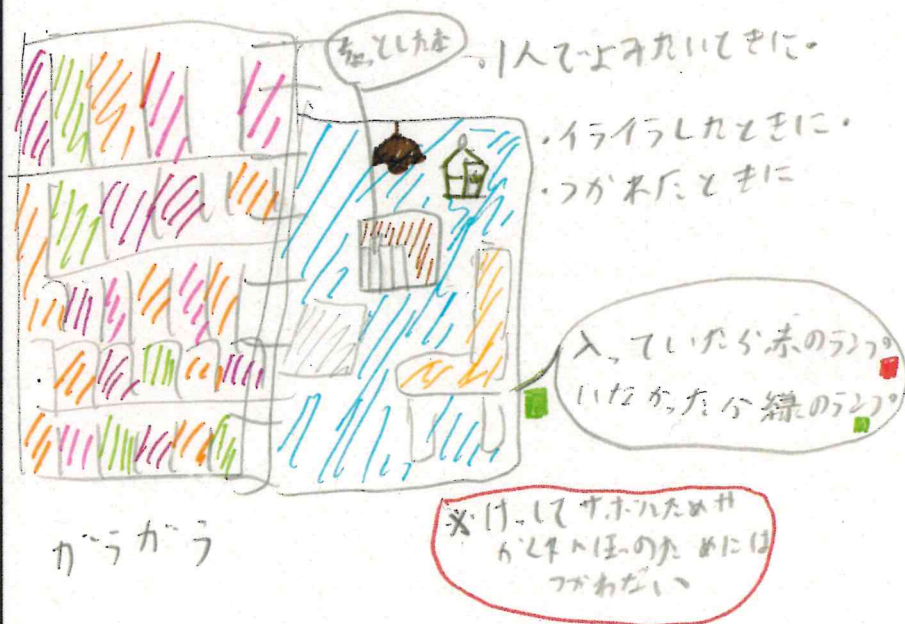 ちょっとした本
・1人でよみたいときに・
・イライラしたときに・
・つかれたときに
入っていたら赤のランプ
いなかったら緑のランプ
※けっしてサボルためや
かくれんぼっのためには
つかわない
ガラガラ